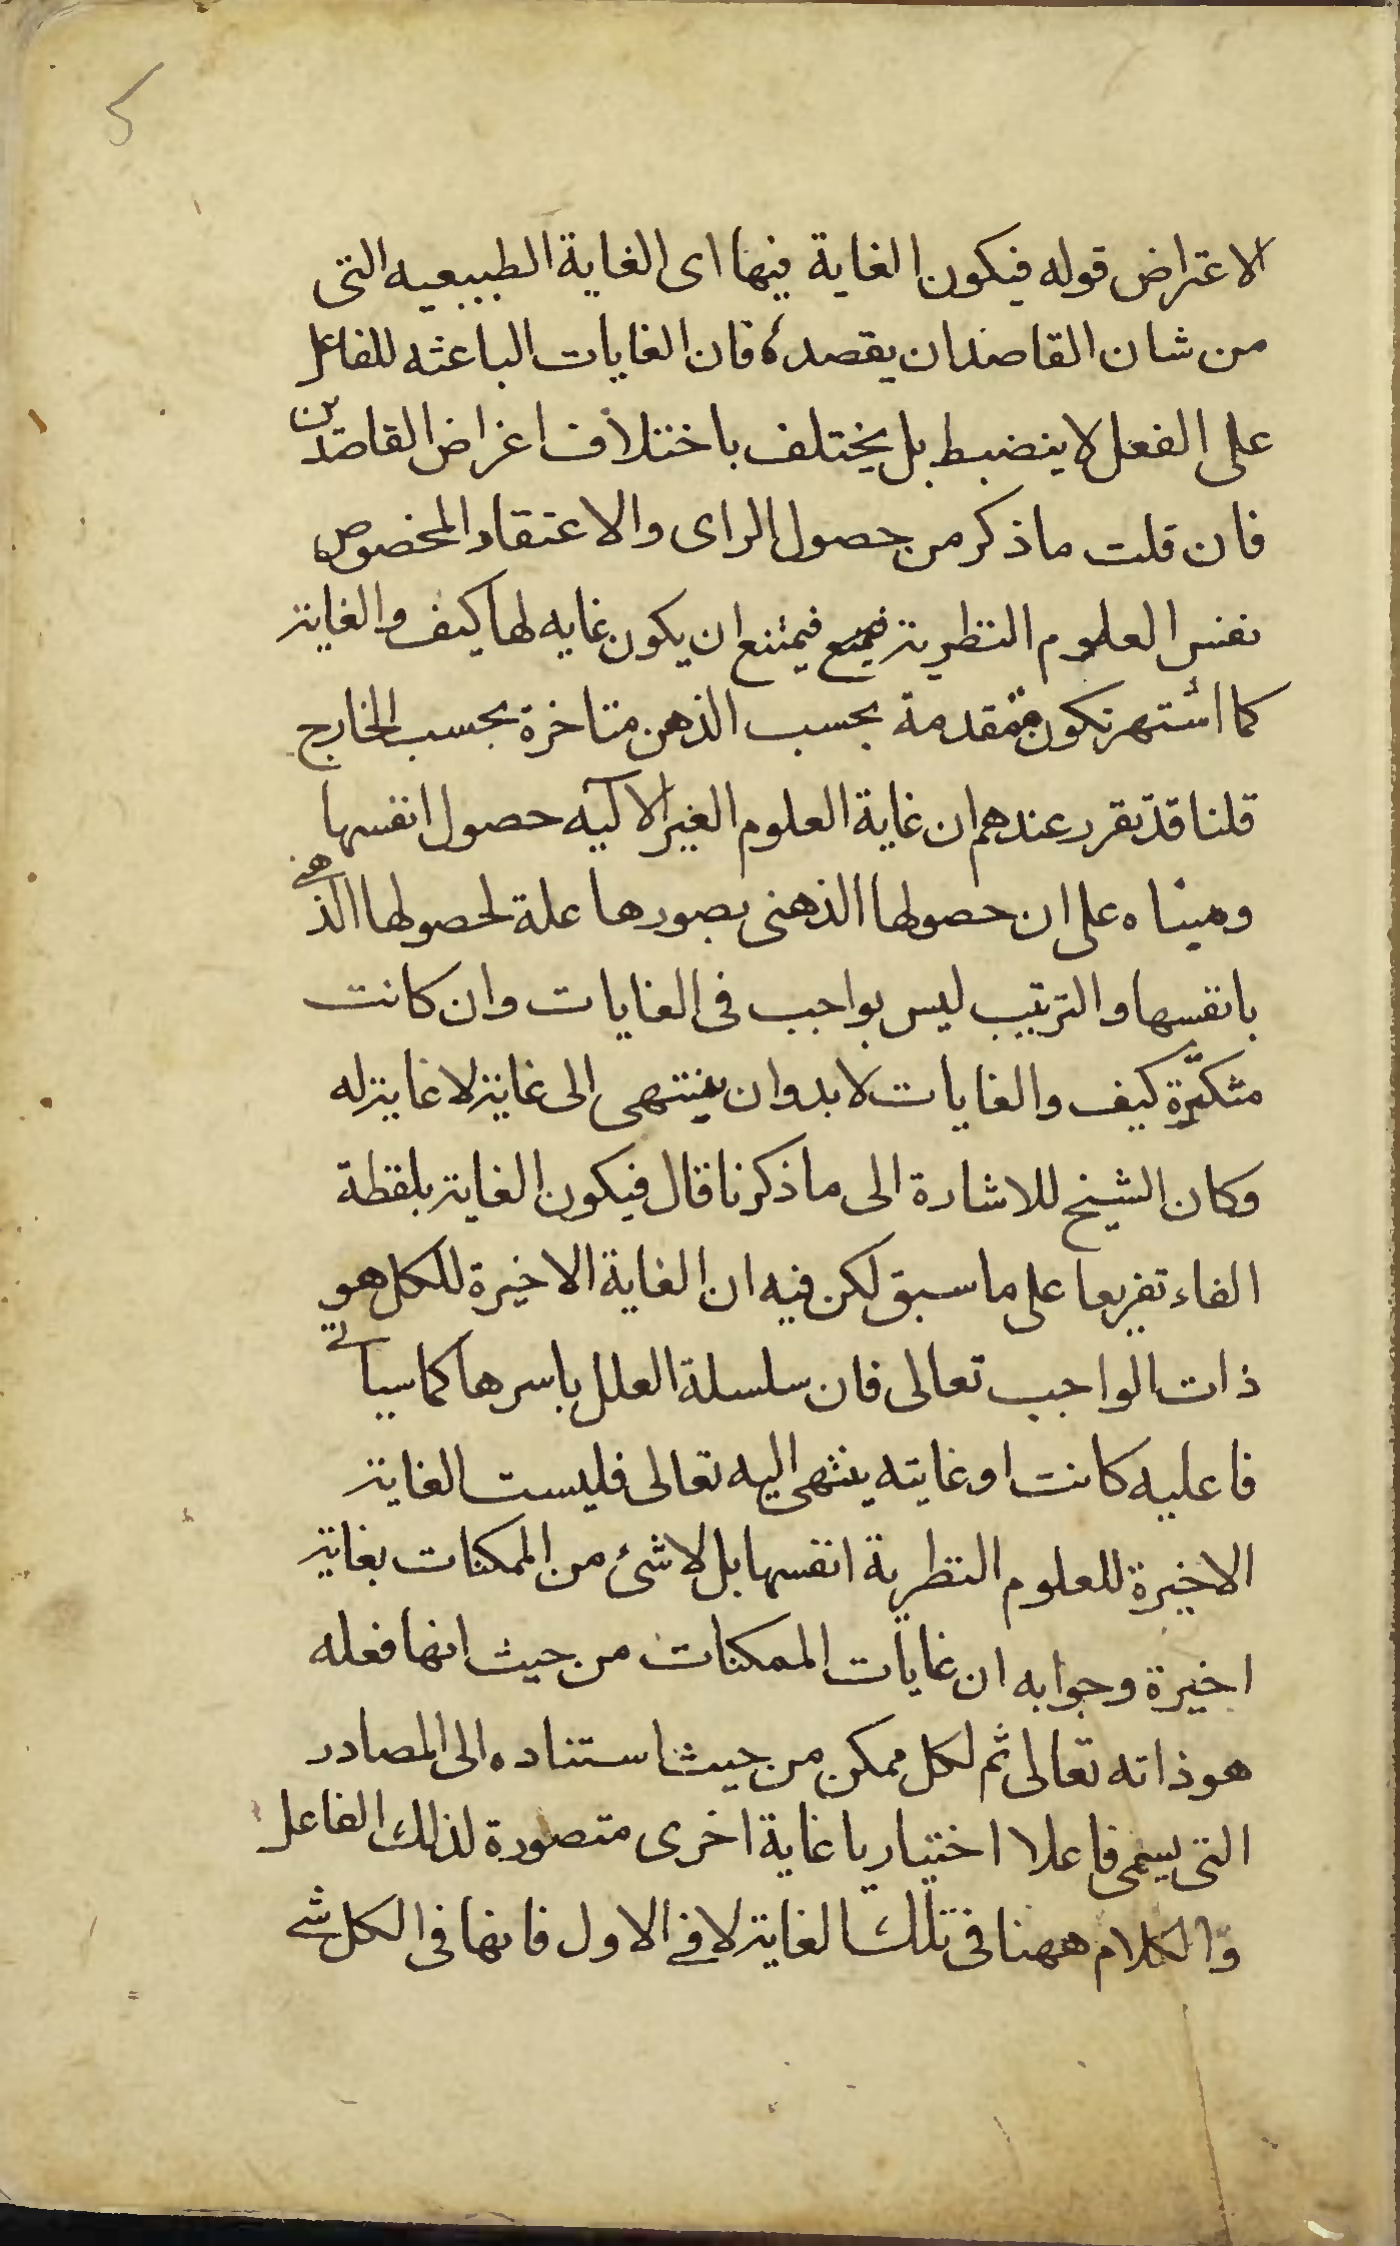 الاعتراض قوله فيكون الغاية فيها اى الغاية الطبيعيه التى
من شان القاصدان يقصده فان الغايات الباعثه للفاعل
على الفعل لا ينضبط بل يختلف باختلاف اغراض القاصدين
فان قلت ما ذكر من حصول الراى والاعتقاد المخصوص
نفس العلوم النظرية فيمتنع ان يكون غايه لها كيف والغاية
كما اشتهر تكون متقدمة بحسب الذهن متاخرة بحسب الخارج
قلنا قد تقرر عندهم ان غاية العلوم الغير الاكيه حصول انفسها
ومبناه على ان حصولها الذهنى بصورها علة لحصولها الذهنى
بانفسها والترتيب ليس بواجب فى الغايات وان كانت
متكثرة كيف والغايات لا بد وان ينتهى الى غاية لا غاية له
وكان الشيخ للاشارة الى ما ذكرنا قال فيكون الغاية بلفظة
الفاء تفريعا على ما سبق لكن فيه ان الغاية الاخيرة للكل هو
ذات الواجب تعالى فان سلسلة العلل باسرها كما سياتى
فاعليه كانت او غايته ينتهى اليه تعالى فليست الغاية
الاخيرة للعلوم النظرية انفسها بل لا شئ من الممكنات بغاية
اخيرة وجوابه ان غايات الممكنات من حيث انها فعله
هو ذاته تعالى ثم لكل ممكن من حيث استناده الى المصادر
التى يسمى فاعلا اختياريا غاية اخرى متصورة لذلك الفاعل
والكلام ههنا فى تلك الغاية لا فى الاول فانها فى الكل شى